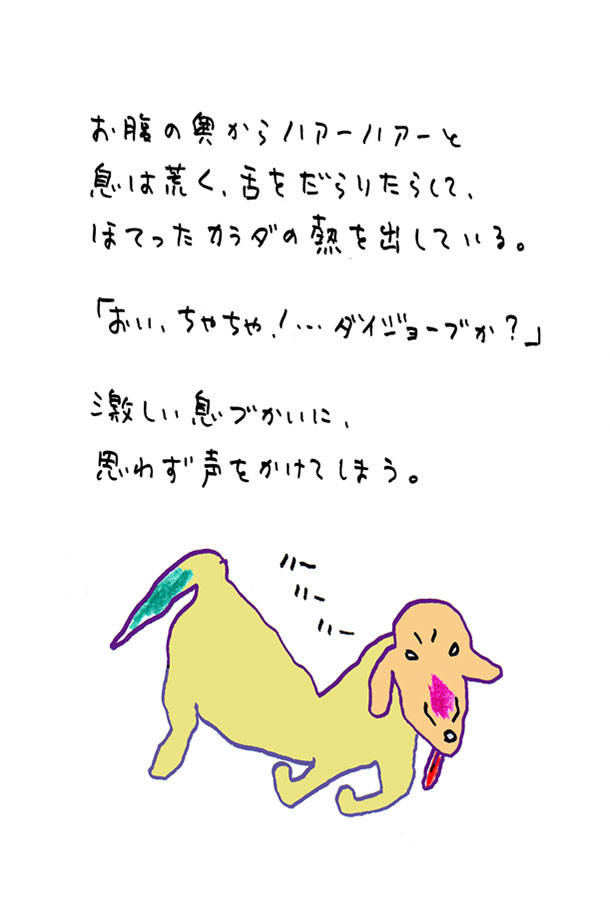 お腹の奥からハアーハアーと
息は荒く、舌をだらりたらして、
ほてったカラダの熱を出している。
「おい、ちゃちゃ!…ダイジョーブか?」
激しい息づかいに、
思わず声をかけてしまう。
ハー
ハー
ハー